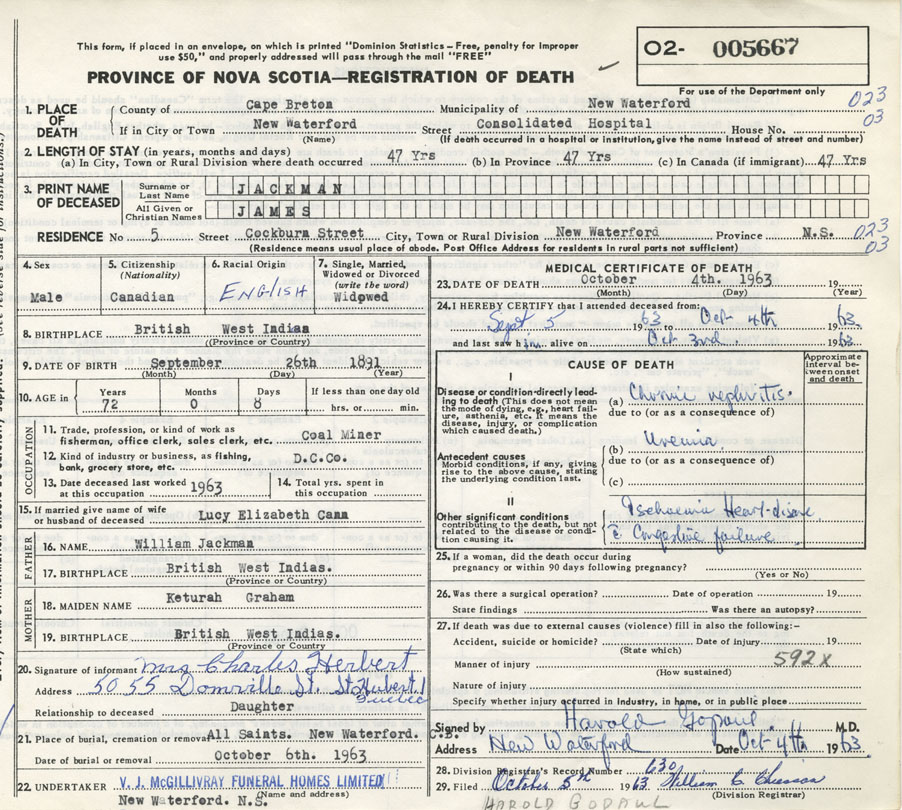 This form, if placed in an envelope, on which is printed "Dominion Statistics – Free, penalty for improper
use $50," and properly addressed will pass through the mail "FREE"
O2- 005667
PROVINCE OF NOVA SCOTIA—REGISTRATION OF DEATH
For use of the Department only
1. PLACE OF DEATH County of Cape Breton Municipality of New Waterford 023
If in City or Town New Waterford Street Consolidated Hospital House No. 03
(Name) (If death occurred in a hospital or institution, give the name instead of street and number)
2. LENGTH OF STAY (in years, months and days)
(a) In City, Town or Rural Division where death occurred 47 Yrs (b) In Province 47 Yrs (c) In Canada (if immigrant) 47 Yrs
3. PRINT NAME OF DECEASED Surname or Last Name JACKMAN
All Given or Christian Names JAMES
RESIDENCE No 5 Street Cockburn Street City, Town or Rural Division New Waterford Province N.S. 023
(Residence means usual place of abode. Post Office Address for residents in rural parts not sufficient) 03
4. Sex Male
5. Citizenship (Nationality) Canadian
6. Racial Origin ENGLISH
7. Single, Married, Widowed or Divorced (write the word) Widowed
8. BIRTHPLACE British West Indies
(Province or Country)
9. DATE OF BIRTH September 26th 1891
(Month) (Day) (Year)
10. AGE in Years 72 Months 0 Days 8 If less than one day old hrs. or min.
OCCUPATION
11. Trade, profession or kind of work as
fisherman, office clerk, sales clerk, etc. Coal Miner
12. Kind of industry or business, as fishing,
bank, grocery store, etc. D.C.Co.
13. Date deceased last worked at this occupation 1963
14. Total yrs. spent in this occupation
15. If married give name of wife
or husband of deceased Lucy Elizabeth Cann
FATHER
16. NAME William Jackman
17. BIRTHPLACE British West Indies.
(Province or Country)
MOTHER
18. MAIDEN NAME Keturah Graham
19. BIRTHPLACE British West Indies.
(Province or Country)
20. Signature of informant Mrs Charles Herbert
Address 5055 Domville St. St Hubert
Quebec
Relationship to deceased Daughter
21. Place of burial, cremation or removal All Saints. New Waterford.
Date of burial or removal October 6th. 1963
22. UNDERTAKER V. J. McGILLIVRAY FUNERAL HOMES LIMITED
(Name and address)
New Waterford. N.S.
MEDICAL CERTIFICATE OF DEATH
23. DATE OF DEATH October 4th. 1963 19
(Month) (Day) (Year)
24. I HEREBY CERTIFY that I attended deceased from:
Sept 5 1963 to Oct 4th 1963.
and last saw him alive on Oct 3rd. 1963.
CAUSE OF DEATH
Approximate interval between onset and death
I
Disease or condition directly leading
to death (This does not mean
the mode of dying, e.g., heart failure,
asthenia, etc. It means the
disease, injury, or complication
which caused death.)
(a) Chronic nephritis.
due to (or as a consequence of)
(b) Uremia
Antecedent causes
Morbid conditions, if any, giving
rise to the above cause, stating
the underlying condition last.
due to (or as a consequence of)
(c)
II
Other significant conditions
contributing to the death, but not
related to the disease or condition
causing it.
Ischaemic Heart disease
c̄ Congestive failure
25. If a woman, did the death occur during
pregnancy or within 90 days following pregnancy?
(Yes or No)
26. Was there a surgical operation? Date of operation 19
State findings Was there an autopsy?
27. If death was due to external causes (violence) fill in also the following:–
Accident, suicide or homicide? Date of injury 19
(State which)
Manner of injury 592X
(How sustained)
Nature of injury
Specify whether injury occurred in industry, in home, or in public place
Signed by Harold Gopaul M.D.
Address New Waterford Date Oct 4th 1963
28. Division Registrar's Record Number 630
29. Filed October 5th 1963 William C
(Division Registrar)
HAROLD GOPAUL